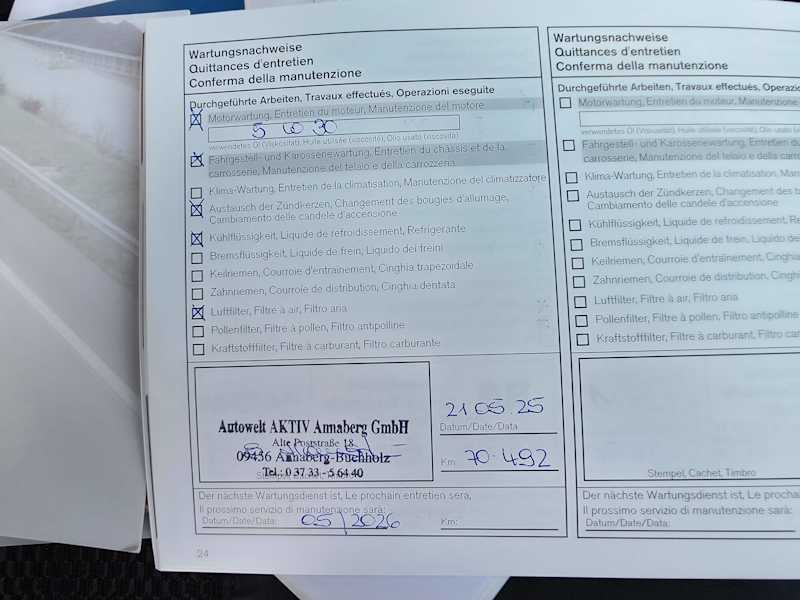 Wartungsnachweise
Quittances d'entretien
Conferma della manutenzione
Durchgeführte Arbeiten, Travaux effectués, Operazioni eseguite
Motorwartung, Entretien du moteur, Manutenzione del motore
5 W 30
verwendetes Öl (Viskosität), Huile utilisée (viscosité), Olio usato (viscosità)
Fahrgestell- und Karosseriewartung, Entretien du châssis et de la
carrosserie, Manutenzione del telaio e della carrozzeria
Klima-Wartung, Entretien de la climatisation, Manutenzione del climatizzatore
Austausch der Zündkerzen, Changement des bougies d'allumage,
Cambiamento delle candele d'accensione
Kühlflüssigkeit, Liquide de refroidissement, Refrigerante
Bremsflüssigkeit, Liquide de frein, Liquido dei freini
Keilriemen, Courroie d'entraînement, Cinghia trapezoidale
Zahnriemen, Courroie de distribution, Cinghia dentata
Luftfilter, Filtre à air, Filtro aria
Pollenfilter, Filtre à pollen, Filtro antipolline
Kraftstofffilter, Filtre à carburant, Filtro carburante
Autowelt AKTIV Annaberg GmbH
Alte Poststraße 18
09456 Annaberg-Buchholz
Tel.: 0 37 33 - 5 64 40
Stempel, Cachet, Timbro
21.05.25
Datum/Date/Data
Km: 70.492
Der nächste Wartungsdienst ist, Le prochain entretien sera,
Il prossimo servizio di manutenzione sarà:
Datum/Date/Data: 05/2026 Km:
24
Wartungsnachweise
Quittances d'entretien
Conferma della manutenzione
Durchgeführte Arbeiten, Travaux effectués, Op
Motorwartung, Entretien du moteur, Manutenzione
verwendetes Öl (Viskosität), Huile utilisée (viscosité), Olio us
Fahrgestell- und Karosseriewartung, Entretien du
carrosserie, Manutenzione del telaio e della carro
Klima-Wartung, Entretien de la climatisation, Man
Austausch der Zündkerzen, Changement des
Cambiamento delle candele d'accensione
Kühlflüssigkeit, Liquide de refroidissement, R
Bremsflüssigkeit, Liquide de frein, Liquido de
Keilriemen, Courroie d'entraînement, Cinghia
Zahnriemen, Courroie de distribution, Cinghia
Luftfilter, Filtre à air, Filtro aria
Pollenfilter, Filtre à pollen, Filtro antipolline
Kraftstofffilter, Filtre à carburant, Filtro car
Stempel, Cachet, Timbro
Der nächste Wartungsdienst ist, Le prochain
Il prossimo servizio di manutenzione sarà:
Datum/Date/Data: